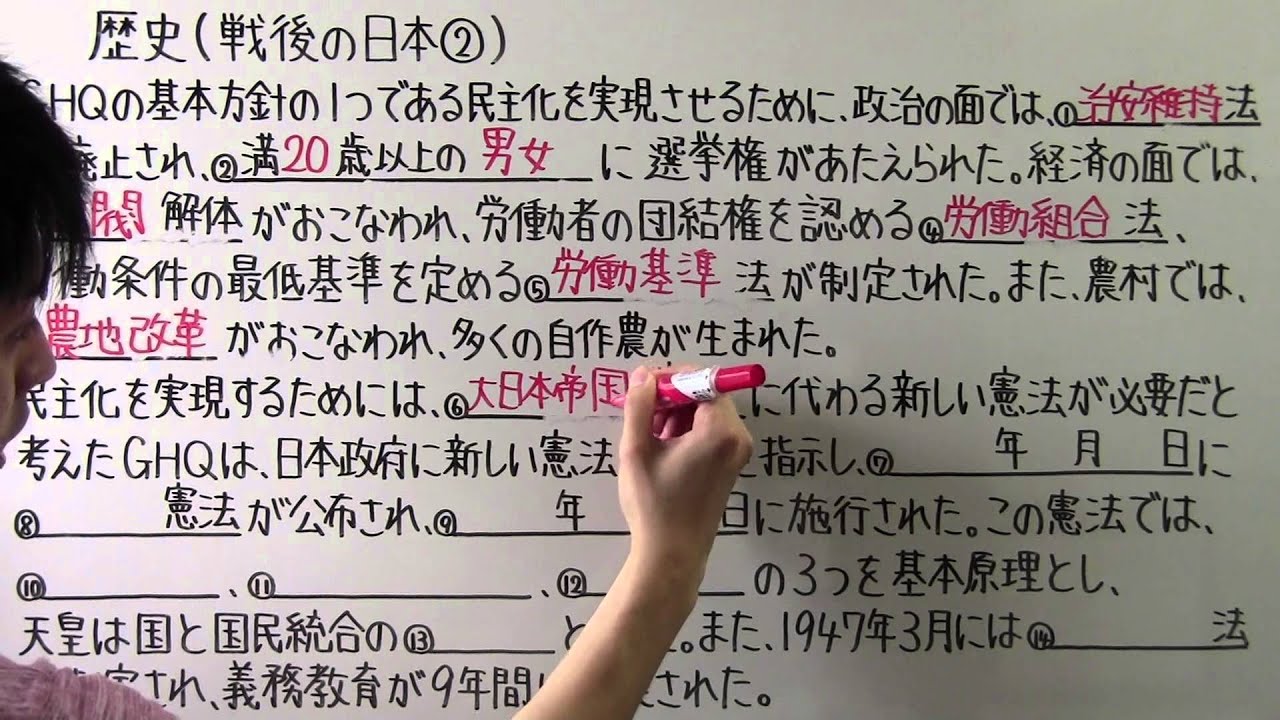 歴史(戦後の日本②)
GHQの基本方針の1つである民主化を実現させるために、政治の面では、①治安維持法
廃止され、②満20歳以上の男女に選挙権があたえられた。経済の面では、
閥解体がおこなわれ、労働者の団結権を認める④労働組合法、
働条件の最低基準を定める⑤労働基準法が制定された。また、農村では、
農地改革がおこなわれ、多くの自作農が生まれた。
民主化を実現するためには、⑥大日本帝国に代わる新しい憲法が必要だと
考えたGHQは、日本政府に新しい憲法を指示し、⑦ 年 月 日に
⑧ 憲法が公布され、⑨ 年 日に施行された。この憲法では、
⑩ 、⑪ 、⑫ の3つを基本原理とし、
天皇は国と国民統合の⑬ と た。また、1947年3月には⑭ 法
定され、義務教育が9年間 された。